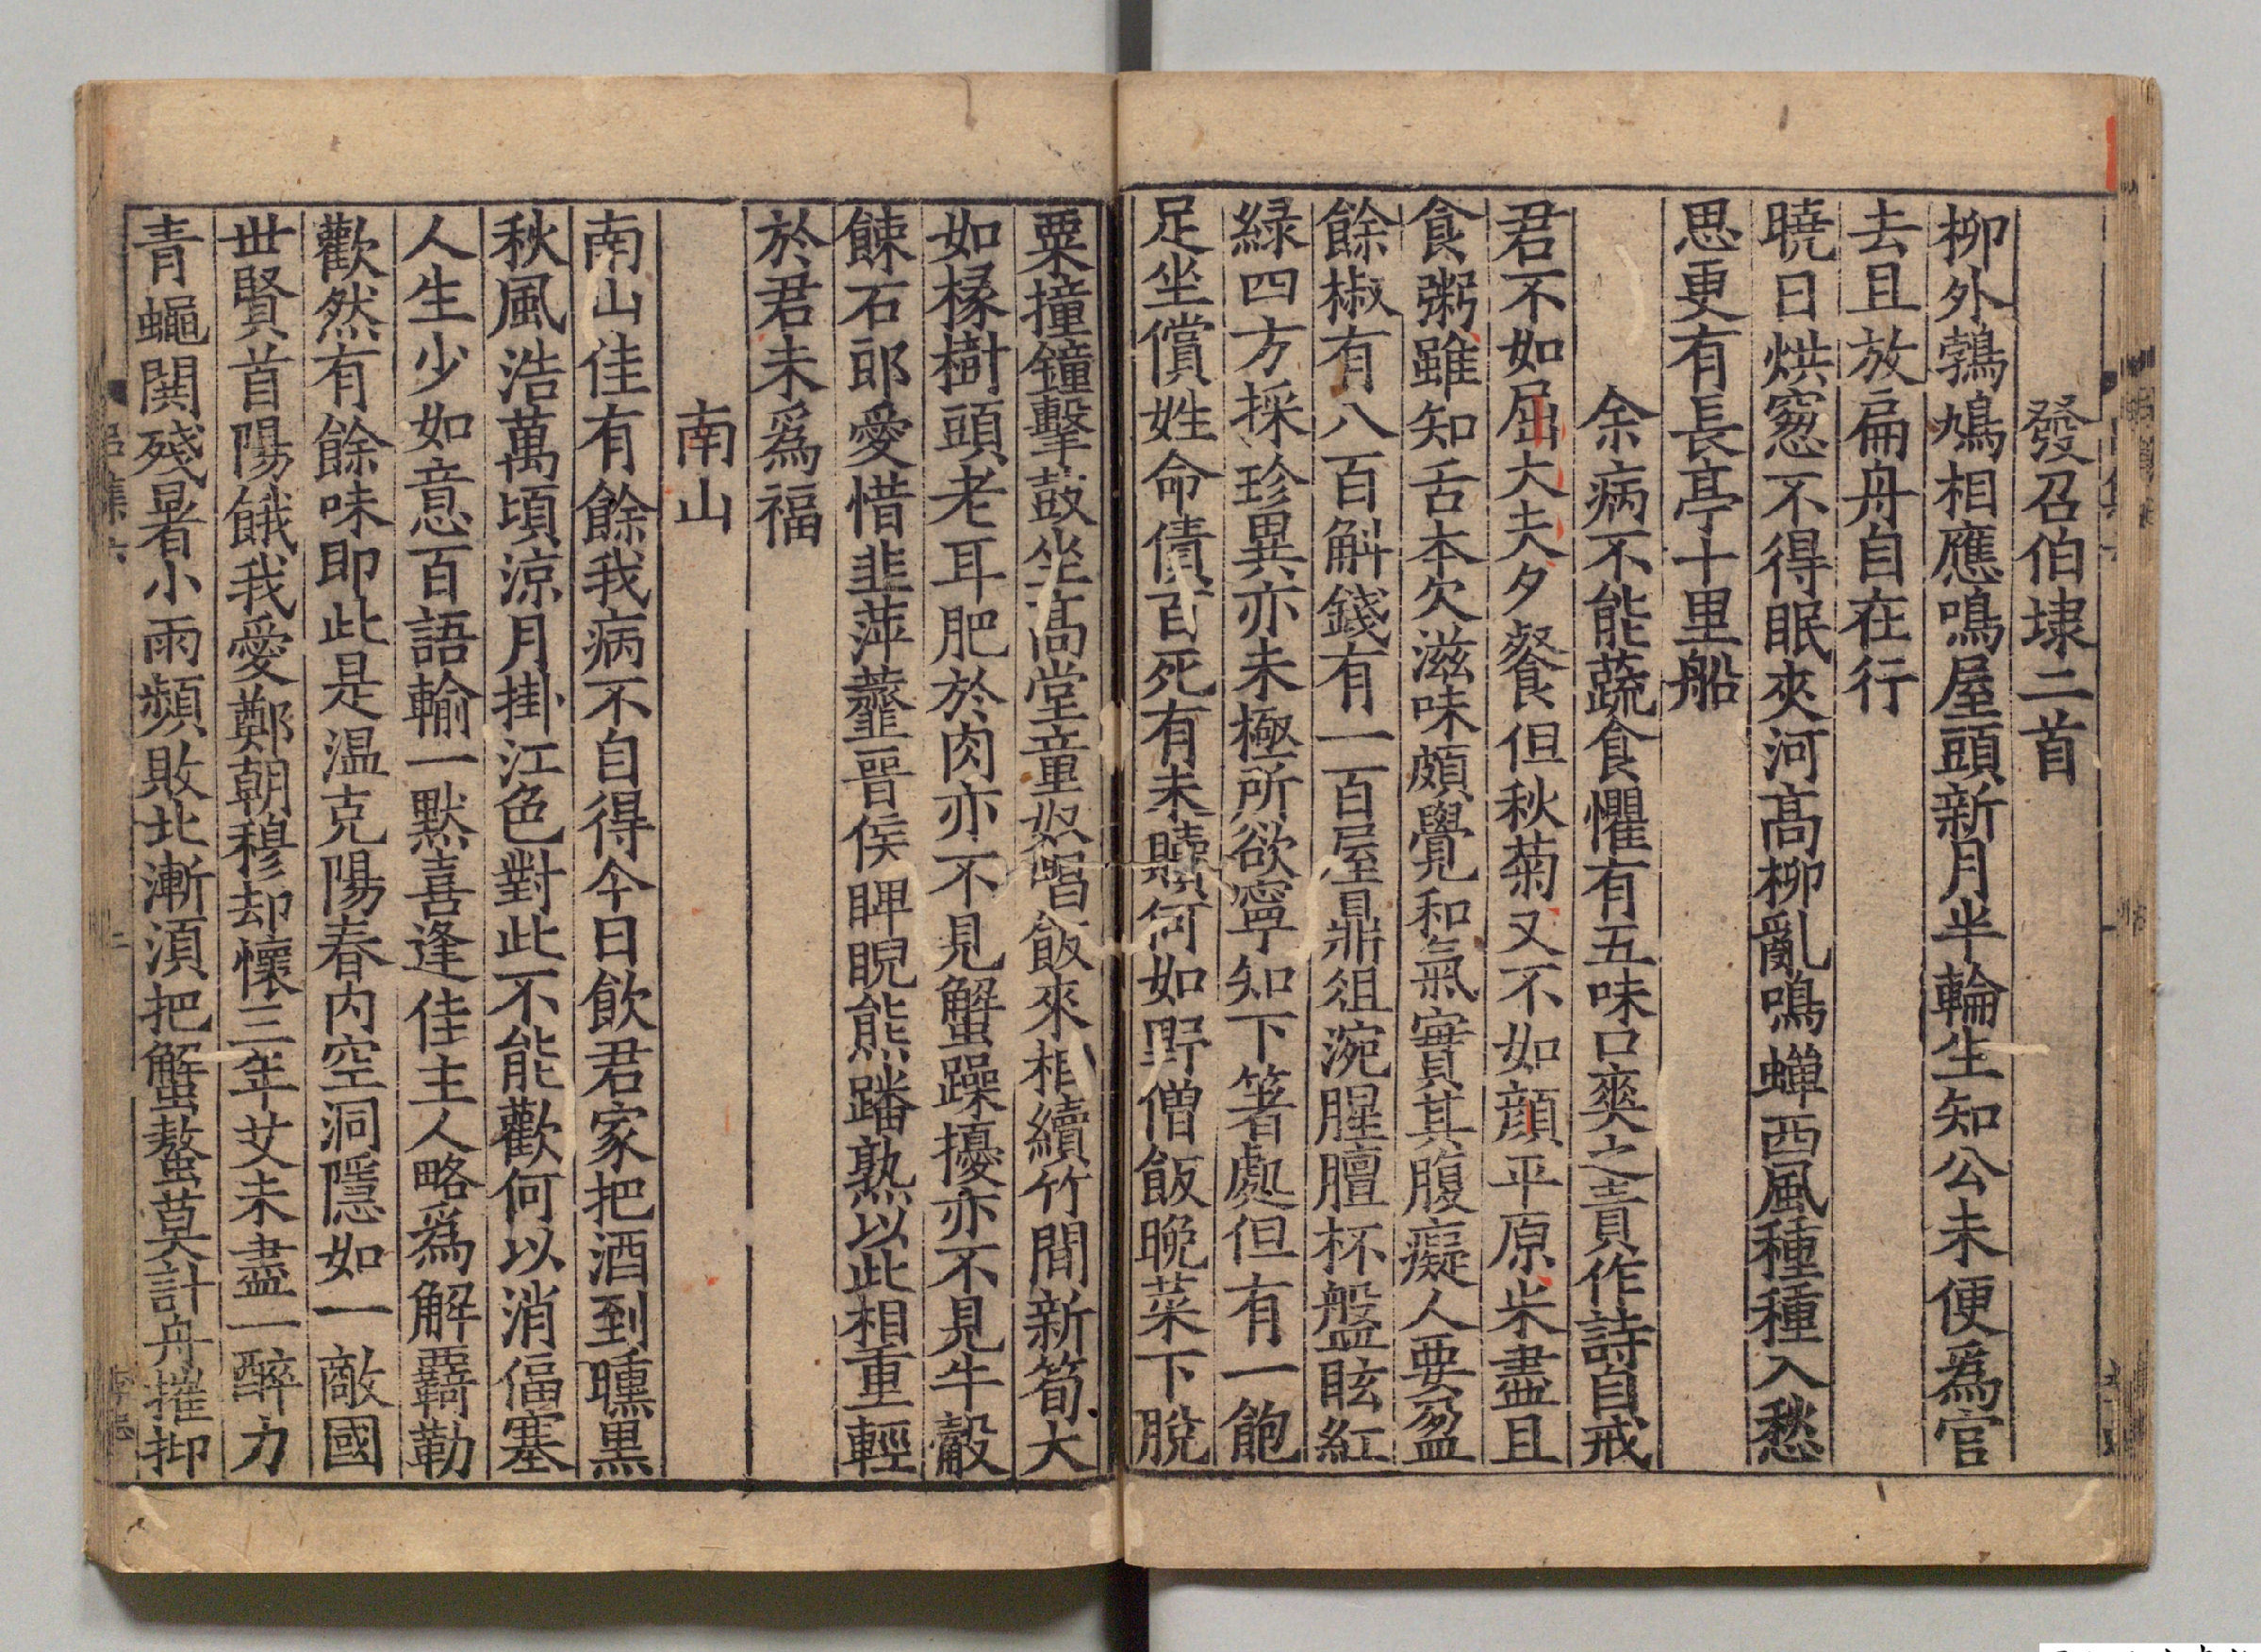 發召伯埭二首
柳外鵓鳩相應鳴屋頭新月半輪生知公未便爲官
去且放扁舟自在行
曉日烘窓不得眠夾河髙柳亂鳴蟬西風種種入愁
思更有長亭十里船
余病不能蔬食懼有五味口爽之責作詩自戒
君不如屈大夫夕餐但秋菊又不如顔平原米盡且
食粥雖知舌本欠滋味頗覺和氣實其腹癡人要盈
餘椒有八百斛錢有一百屋鼎俎涴腥膻杯盤眩紅
緑四方採珍異亦未極所欲寧知下箸處但有一飽
足坐償姓命債百死有未贖何如野僧飯晚菜下脫
粟撞鐘擊鼓坐髙堂童奴唱飯來相續竹間新筍大
如椽樹頭老耳肥於肉亦不見蟹躁擾亦不見牛觳
餗石郎愛惜韭蓱虀晉侯睥睨熊蹯熟以此相重輕
於君未爲福
南山
南山佳有餘我病不自得今日飲君家把酒到曛黒
秋風浩萬頃涼月掛江色對此不能歡何以消偪塞
人生少如意百語輸一默喜逢佳主人略爲解覊勒
歡然有餘味即此是温克陽春内空洞隱如一敵國
世賢首陽餓我愛鄭朝穆却懷三年艾未盡一醉力
青蠅閧殘暑小雨頻敗北漸湏把蟹螯莫計舟摧抑